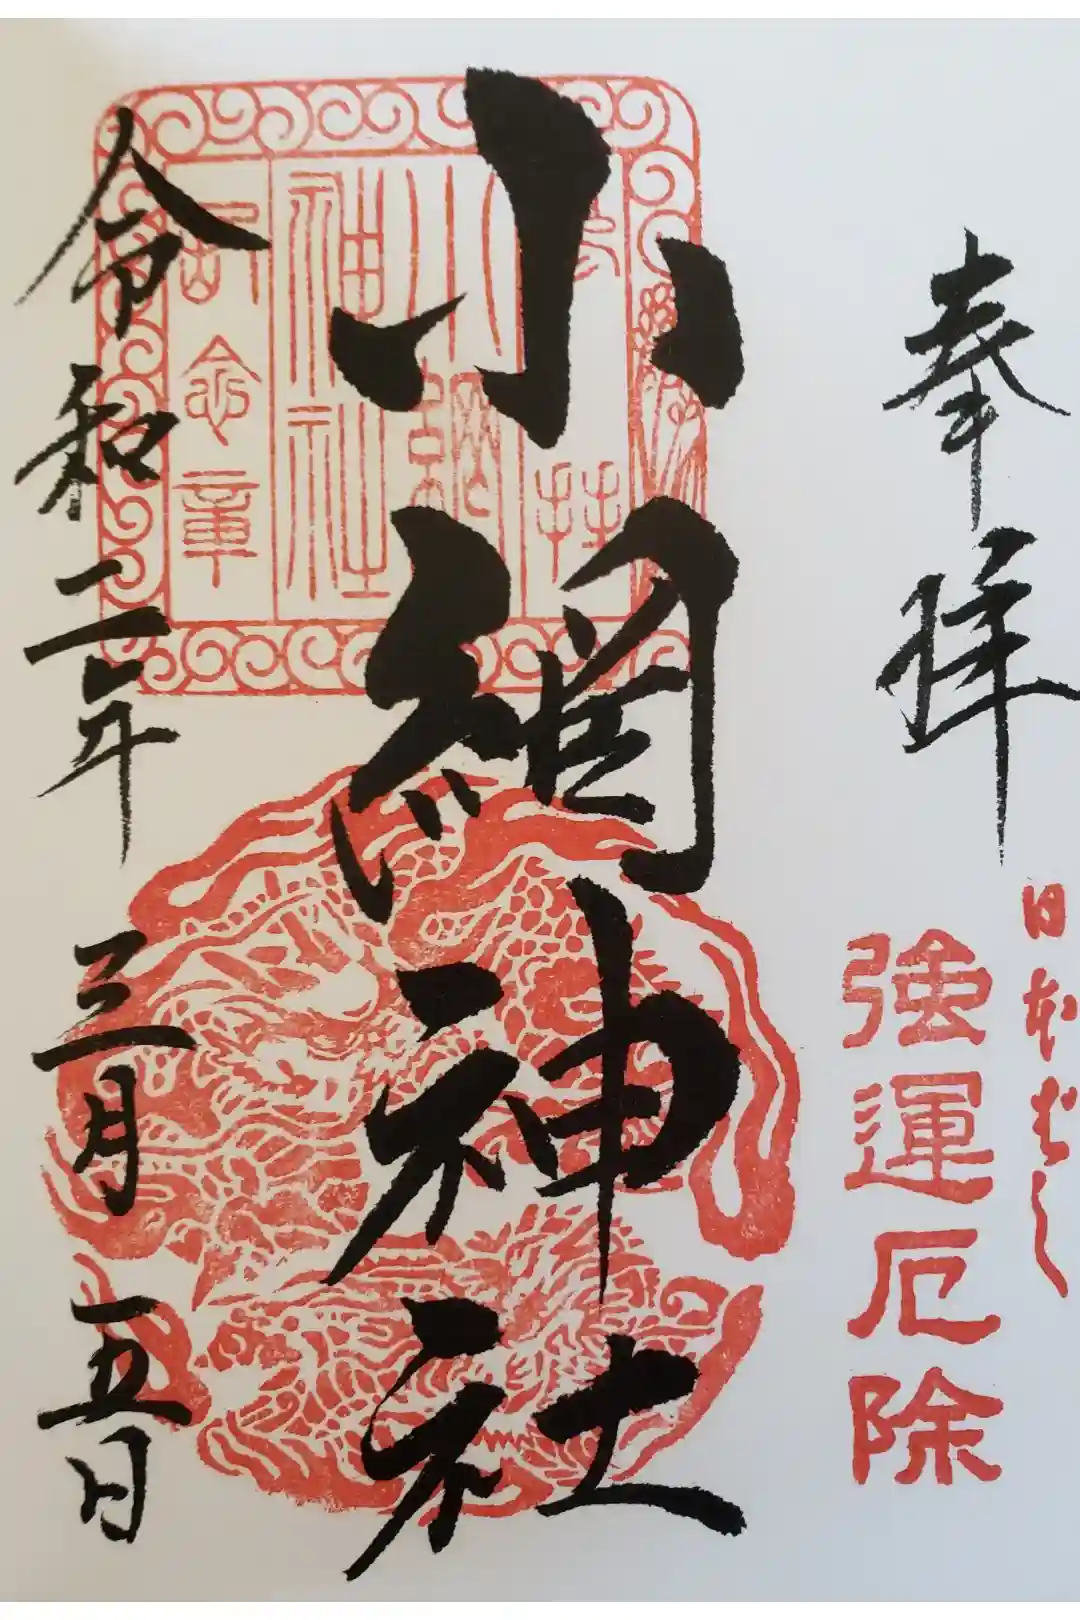 奉拝
日本ばし
強運厄除
小網神社
小網
神社
令和二年三月五日